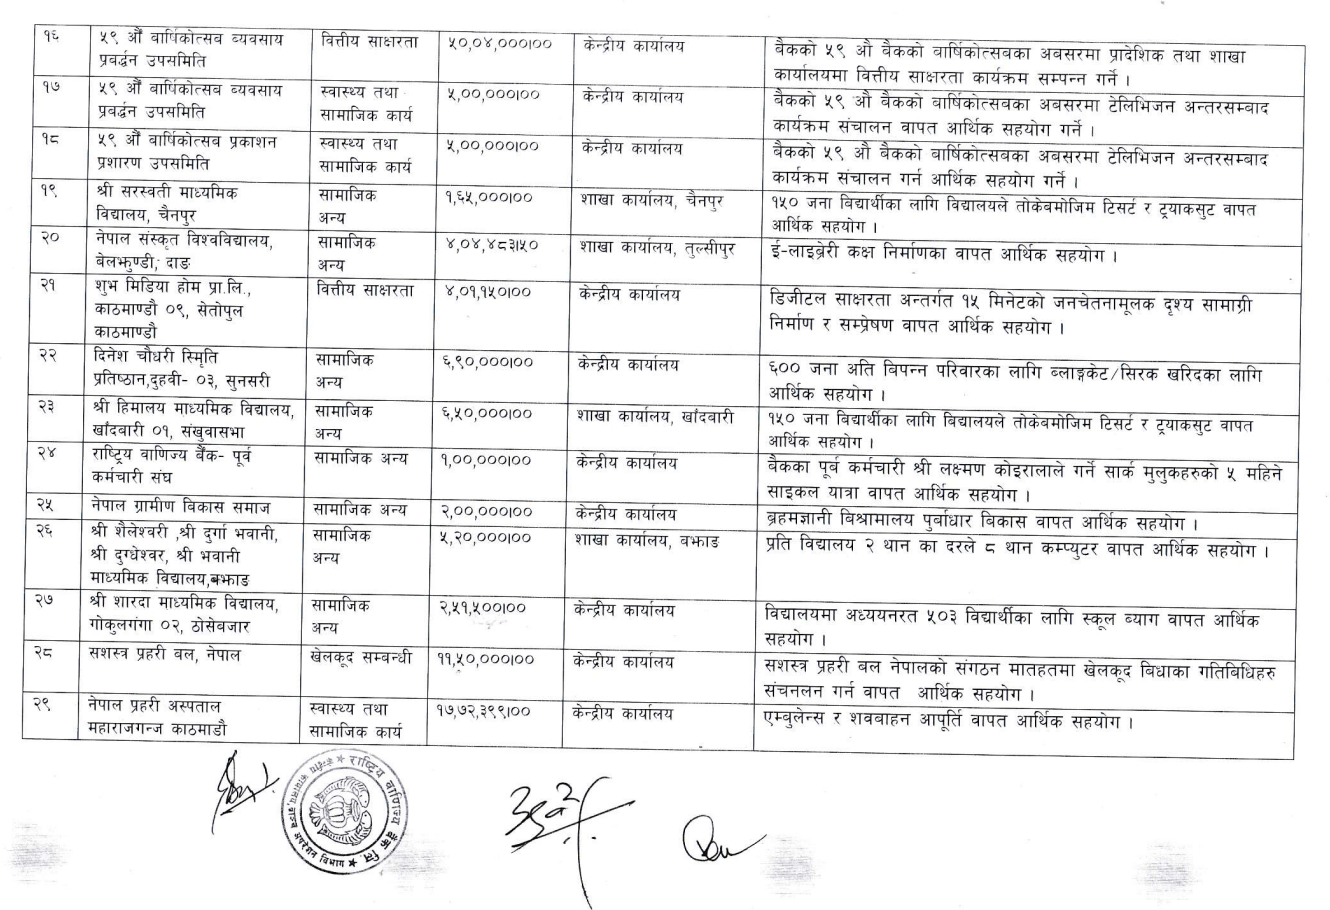 १६
५९ औं वार्षिकोत्सव व्यवसाय
प्रवर्द्धन उपसमिति
वित्तीय साक्षरता
५०,०४,०००।००
केन्द्रीय कार्यालय
बैंकको ५९ औ बैंकको वार्षिकोत्सवका अवसरमा प्रादेशिक तथा शाखा
कार्यालयमा वित्तीय साक्षरता कार्यक्रम सम्पन्न गर्ने ।
१७
५९ औं वार्षिकोत्सव व्यवसाय
प्रवर्द्धन उपसमिति
स्वास्थ्य तथा
सामाजिक कार्य
५,००,०००।००
केन्द्रीय कार्यालय
बैंकको ५९ औ बैंकको वार्षिकोत्सवका अवसरमा टेलिभिजन अन्तरसम्बाद
कार्यक्रम संचालन वापत आर्थिक सहयोग गर्ने ।
१८
५९ औं वार्षिकोत्सव प्रकाशन
प्रशारण उपसमिति
स्वास्थ्य तथा
सामाजिक कार्य
५,००,०००।००
केन्द्रीय कार्यालय
बैंकको ५९ औ बैंकको वार्षिकोत्सवका अवसरमा टेलिभिजन अन्तरसम्बाद
कार्यक्रम संचालन गर्न आर्थिक सहयोग गर्ने ।
१९
श्री सरस्वती माध्यमिक
विद्यालय, चैनपुर
सामाजिक
अन्य
१,६५,०००।००
शाखा कार्यालय, चैनपुर
१५० जना विद्यार्थीका लागि विद्यालयले तोकेबमोजिम टिसर्ट र ट्र्याकसुट वापत
आर्थिक सहयोग ।
२०
नेपाल संस्कृत विश्वविद्यालय,
बेलझुण्डी, दाङ
सामाजिक
अन्य
४,०४,४८३।५०
शाखा कार्यालय, तुल्सीपुर
ई-लाइब्रेरी कक्ष निर्माणका वापत आर्थिक सहयोग ।
२१
शुभ मिडिया होम प्रा.लि.,
काठमाण्डौ ०९, सेतोपुल
काठमाण्डौ
वित्तीय साक्षरता
४,०१,१५०।००
केन्द्रीय कार्यालय
डिजीटल साक्षरता अन्तर्गत १५ मिनेटको जनचेतनामूलक दृश्य सामाग्री
निर्माण र सम्प्रेषण वापत आर्थिक सहयोग ।
२२
दिनेश चौधरी स्मृिति
प्रतिष्ठान,दुहवी- ०३, सुनसरी
सामाजिक
अन्य
६,९०,०००।००
केन्द्रीय कार्यालय
६०० जना अति विपन्न परिवारका लागि ब्लाङ्केट/सिरक खरिदका लागि
आर्थिक सहयोग ।
२३
श्री हिमालय माध्यमिक विद्यालय,
खाँदबारी ०१, संखुवासभा
सामाजिक
अन्य
६,५०,०००।००
शाखा कार्यालय, खाँदबारी
१५० जना विद्यार्थीका लागि विद्यालयले तोकेबमोजिम टिसर्ट र ट्र्याकसुट वापत
आर्थिक सहयोग ।
२४
राष्ट्रिय वाणिज्य बैंक- पूर्व
कर्मचारी संघ
सामाजिक अन्य
१,००,०००।००
केन्द्रीय कार्यालय
बैकका पूर्ब कर्मचारी श्री लक्ष्मण कोइरालाले गर्ने सार्क मुलुकहरुको ५ महिने
साइकल यात्रा वापत आर्थिक सहयोग ।
२५
नेपाल ग्रामीण विकास समाज
सामाजिक अन्य
२,००,०००।००
केन्द्रीय कार्यालय
ब्रहमज्ञानी बिश्रामालय पुर्बाधार बिकास वापत आर्थिक सहयोग ।
२६
श्री शैलेश्वरी ,श्री दुर्गा भवानी,
श्री दुग्धेश्वर, श्री भवानी
माध्यमिक विद्यालय,बझाङ
सामाजिक
अन्य
५,२०,०००।००
शाखा कार्यालय, बझाङ
प्रति विद्यालय २ थान का दरले ८ थान कम्प्युटर वापत आर्थिक सहयोग ।
२७
श्री शारदा माध्यमिक विद्यालय,
गोकुलगंगा ०२, ठोसेबजार
सामाजिक
अन्य
२,५१,५००।००
केन्द्रीय कार्यालय
विद्यालयमा अध्ययनरत ५०३ विद्यार्थीका लागि स्कूल ब्याग वापत आर्थिक
सहयोग ।
२८
सशस्त्र प्रहरी वल, नेपाल
खेलकूद सम्वन्धी
११,५०,०००।००
केन्द्रीय कार्यालय
सशस्त्र प्रहरी बल नेपालको संगठन मातहतमा खेलकूद बिधाका गतिबिधिहरु
संचनलन गर्न वापत आर्थिक सहयोग ।
२९
नेपाल प्रहरी अस्पताल
महाराजगन्ज काठमाडौं
स्वास्थ्य तथा
सामाजिक कार्य
१७,७२,३९९।००
केन्द्रीय कार्यालय
एम्बुलेन्स र शवबाहन आपूर्ति वापत आर्थिक सहयोग ।
राष्ट्रिय वाणिज्य बैंक लि.